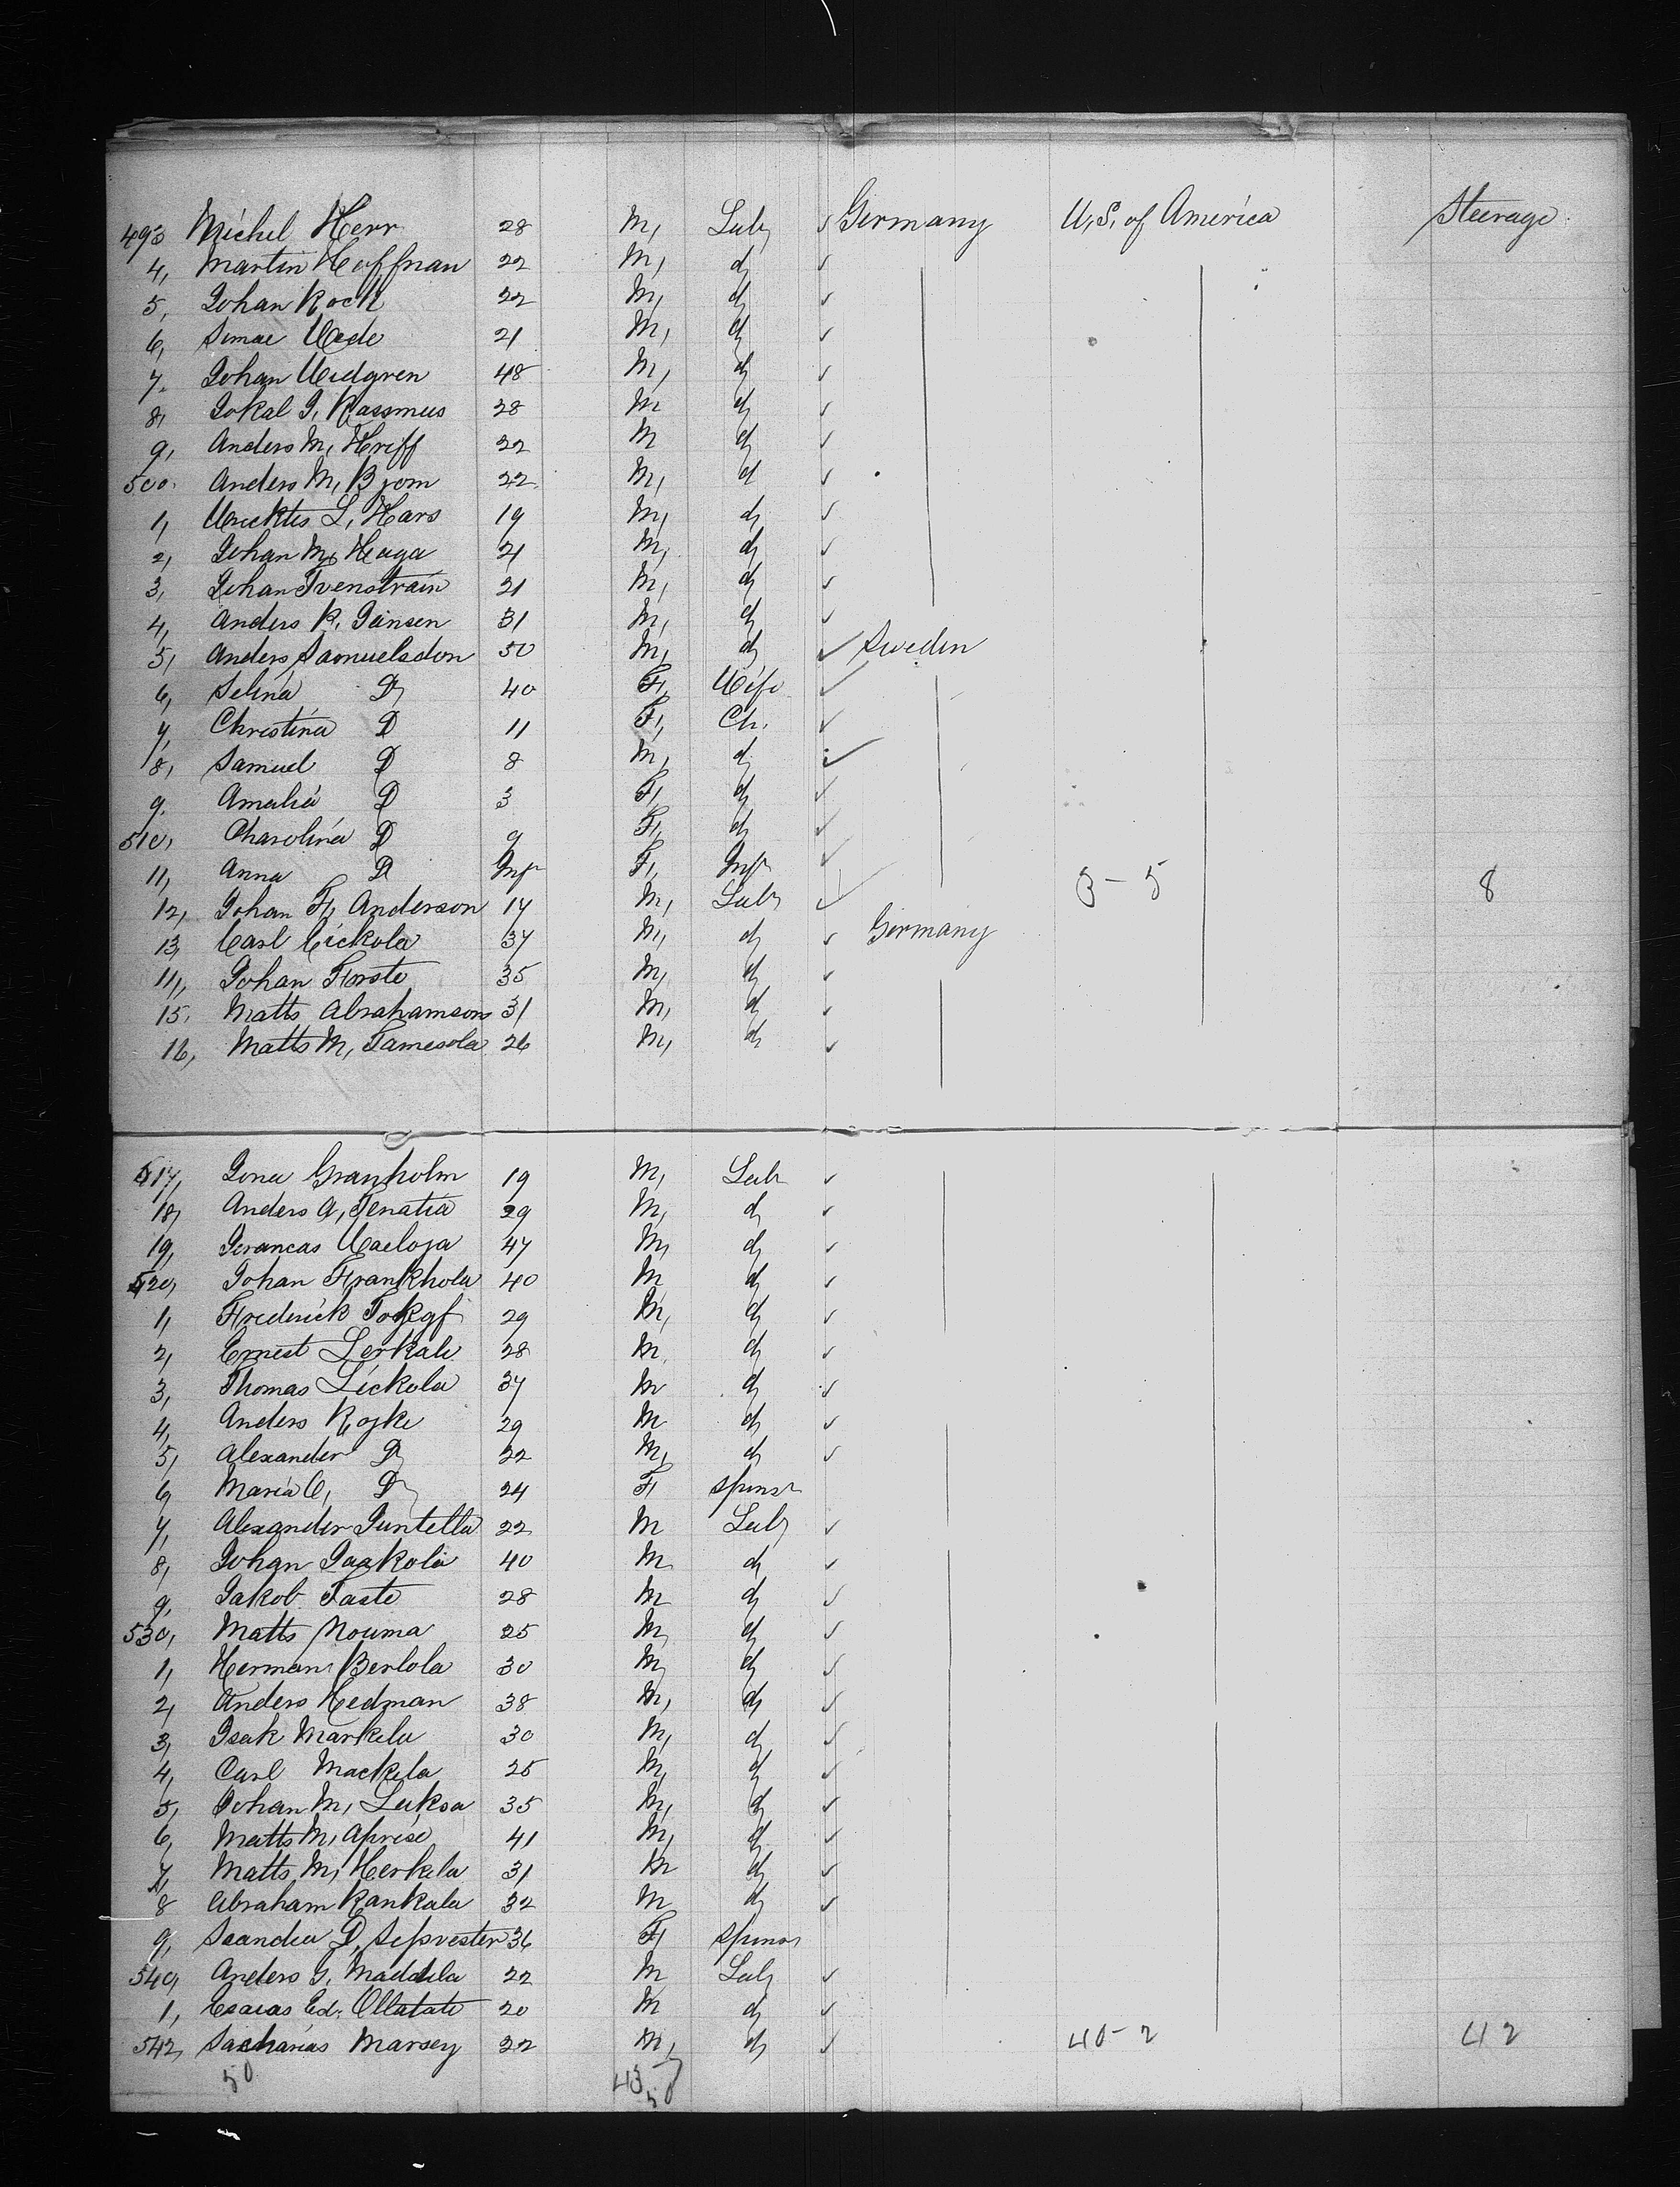 493 Michel Herr 28 M, Lab, ✓ Germany U,S, of America Steerage
4, Martin Hoffman 22 M, do ✓
5, Johan Koch 22 M, do ✓
6, 21 M, do ✓
7. Johan Wedgren 48 M, do ✓
8, J, Rassmus 28 M do ✓
9, Anders M, Hriff 22 M do ✓
500. Anders M, Bjom 22 M, do ✓
1, L, Hars 19 M, do ✓
2, Johan M, Haga 21 M, do ✓
3, Johan Tvenstrain 21 M, do ✓
4, Anders K, Jansen 31 M, do ✓
5, Anders Samuelsdon 50 M, do ✓ Sweden
6, Selina Do 40 F, Wife ✓
7, Christina D 11 F, Ch. ✓
8, Samuel D 8 M, do ✓
9. Amalia D 3 F, do ✓
510, Charolina D 9 F, do ✓
11, Anna D Inf F, Inf ✓
12, Johan F, Anderson 17 M, Lab ✓ 3-5 8
13, Carl Cickola 37 M, do ✓ Germany
14, Johan Forste 35 M, do ✓
15, Matts Abrahamson 31 M, do ✓
16, Matts M, Tamesola 26 M, do ✓
517, Jona Granholm 19 M, Lab ✓
18, Anders A, Tenatia 29 M, do ✓
19, 47 M, do ✓
520, Johan Frankhola 40 M do ✓
1, Frederick 29 M, do ✓
2, Ernest Lerkale 28 M, do ✓
3, Thomas Lickola 37 M do ✓
4, Anders Kojke 29 M do ✓
5, Alexander Do 22 M, do ✓
6, Maria C, Do 24 F, Spinsr
7, Alexander Puntella 22 M Lab, ✓
8, Johan Jaakola 40 M do ✓
9, Jakob Faste 28 M do ✓
530, Matts Nouma 25 M, do ✓
1, Herman Berlola 30 M, do ✓
2, Anders Hedman 38 M, do ✓
3, Isak Markela 30 M, do ✓
4, Carl Mackela 25 M, do ✓
5, Johan M, Luksa 35 M, do ✓
6, Matts M, Aprise 41 M, do ✓
7, Matts M, Herkela 31 M do ✓
8 Abraham Kankala 32 M do ✓
9, Saandea D, Sepvester 36 F, Spinsr
540, Anders G, Maddela 22 M Lab, ✓
1, Esaias Ed. Ollatate 20 M do ✓
542, Sacharias Marsey 22 M, do ✓ 40-2 42
50 43 7
50